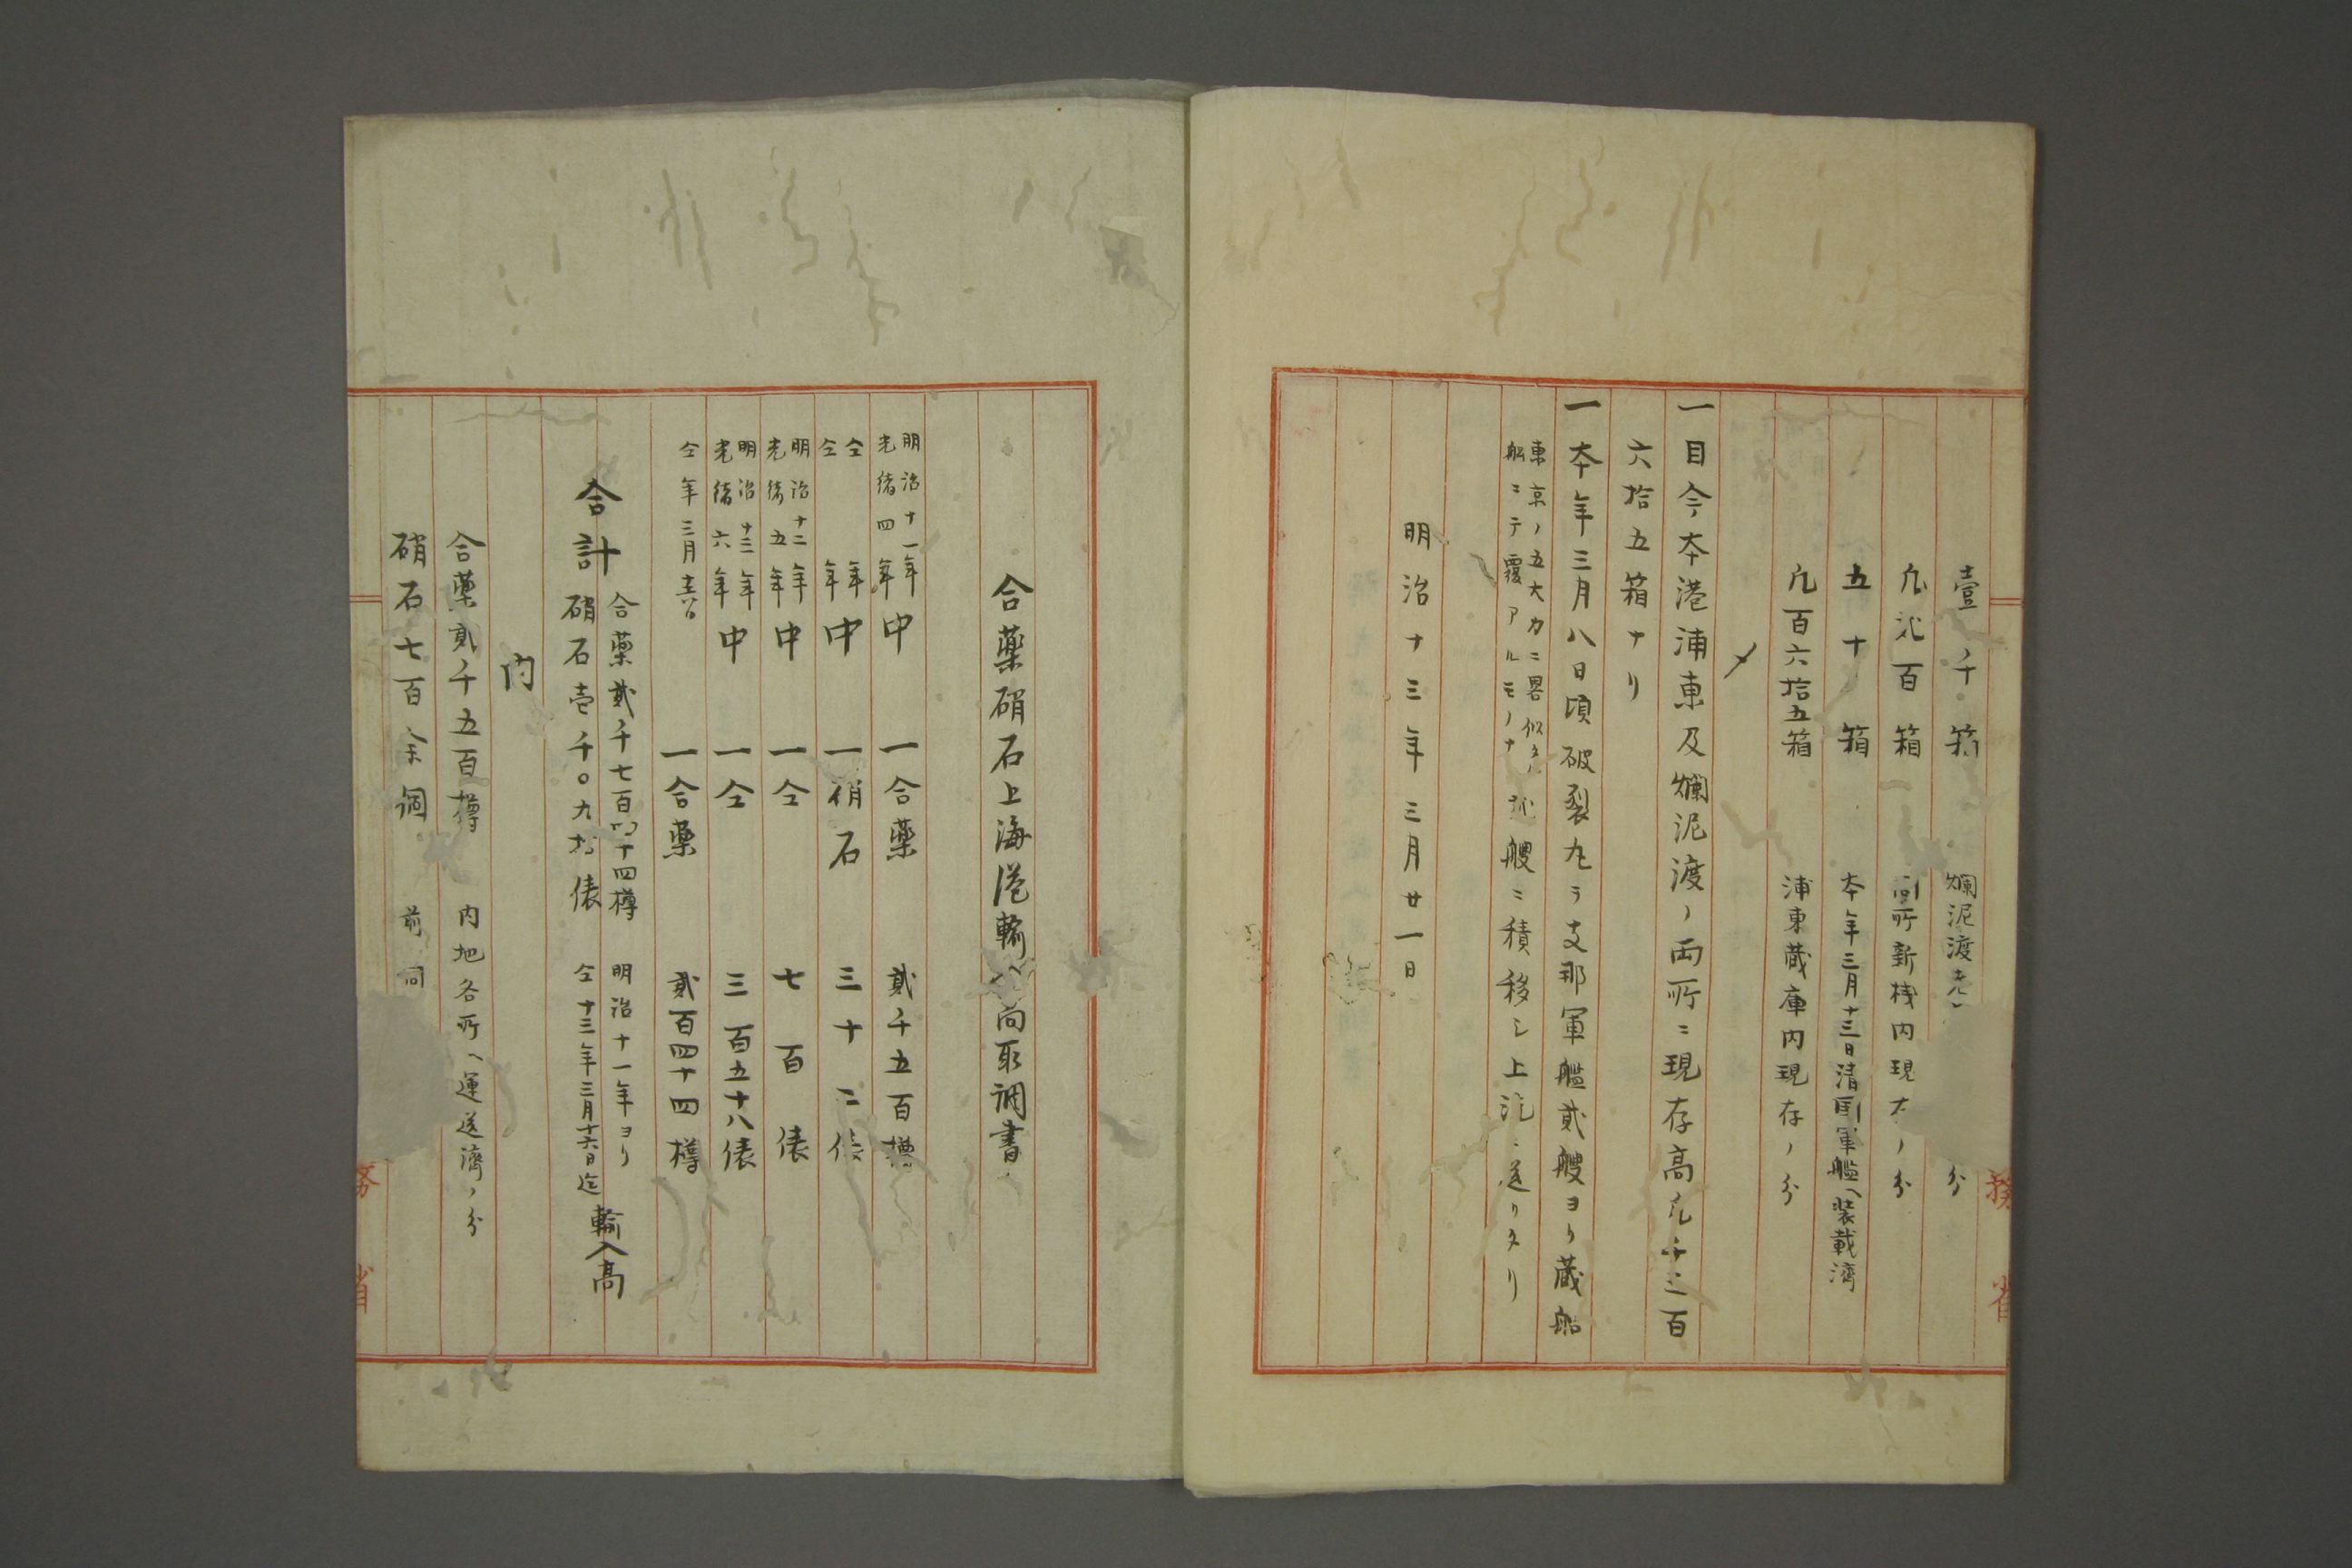 壹千箱 爛泥渡 分
凡弍百箱 同所新棧内現在ノ分
五十箱 本年三月十三日清国軍艦ヘ装載済
凡百六拾五箱 浦東蔵庫内現存ノ分
〆
一目今本港浦東及爛泥渡ノ両所ニ現存高凡千三百
六拾五箱ナリ
一本年三月八日頃破裂丸ヲ支那軍艦貳艘ヨリ蔵船
東京ノ五大力ニ畧似タル
船ニテ覆アルモノナ
弍艘ニ積移シ上流ニ送リタリ
明治十三年三月廿一日
務省
合薬硝石上海港輸入向取調書
明治十一年
光緒四年
中 一合薬 貳千五百樽
仝年
仝年
中 一硝石 三十二俵
明治十二年
光緒五年
中 一仝 七百俵
明治十三年
光緒六年
中 一仝 三百五十八俵
仝年三月十六日 一合薬 貳百四十四樽
合計
合薬貳千七百四十四樽
硝石壱千〇九拾俵
明治十一年ヨリ
仝十三年三月十六日迄
輸入高
内
合薬貳千五百樽 内地各所ヘ運送濟ノ分
硝石七百余個 前同
務省